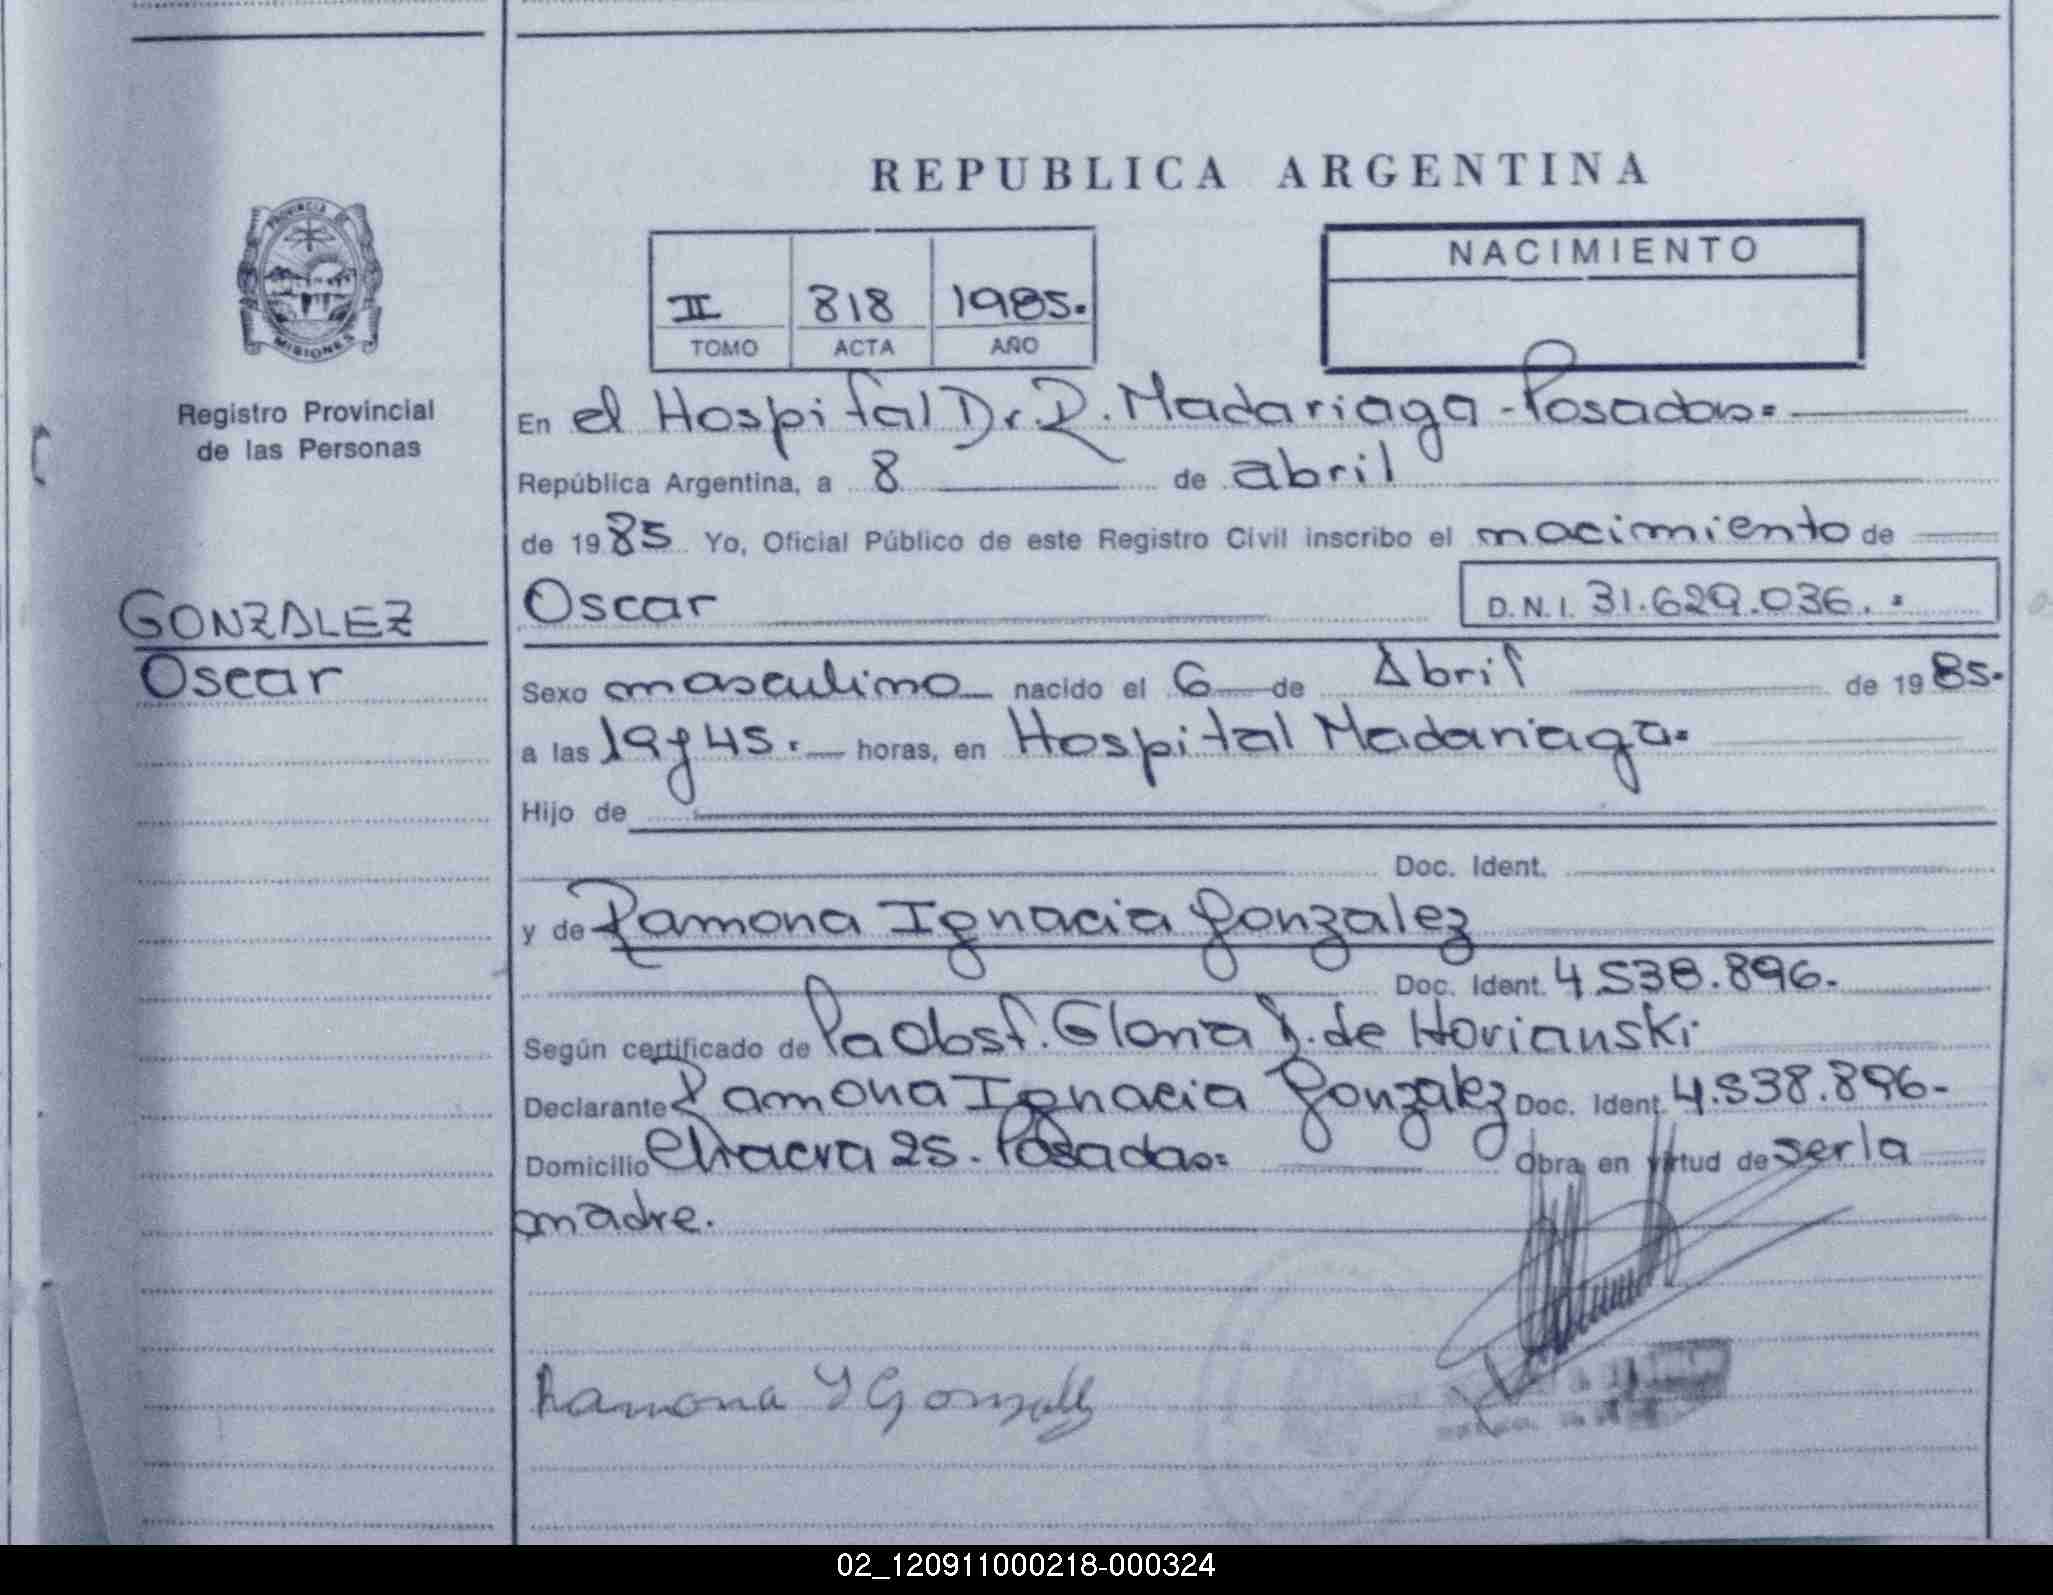 REPUBLICA ARGENTINA
PROVINCIA DE
MISIONES
Registro Provincial
de las Personas
II 818 1985.
TOMO ACTA AÑO
NACIMIENTO
En el Hospital Dr R. Madariaga - Posadas=
República Argentina, a 8 de abril
de 1985 Yo, Oficial Público de este Registro Civil inscribo el nacimiento de
GONZALEZ
Oscar
Oscar D.N.I. 31.629.036.=
Sexo masculino nacido el 6 de Abril de 1985.
a las 19y45. horas, en Hospital Madariaga=
Hijo de
Doc. Ident.
y de Ramona Ignacia Gonzalez
Doc. Ident. 4.538.896.
Según certificado de Pa Obst. Gloria de Hovianski
Declarante Ramona Ignacia Gonzalez Doc. Ident. 4.538.896-
Domicilio Chacra 25. Posadas= Obra en virtud de ser la
madre.
Ramona Y Gonzalez
02_120911000218-000324